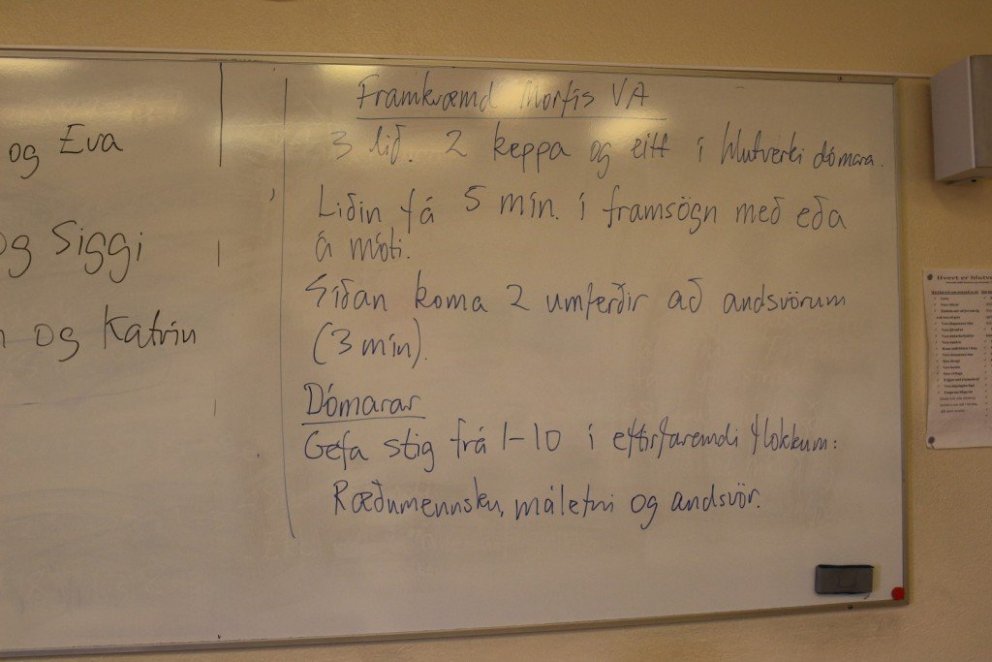 og Eva
og Siggi
og Katrín
Framkvæmd Morfís VA
3 lið. 2 keppa og eitt í hlutverki dómara.
Liðin fá 5 mín. í framsögn með eða
á móti.
Síðan koma 2 umferðir að andsvörum
(3 mín).
Dómarar
Gefa stig frá 1-10 í eftirfarandi flokkum:
Ræðumennsku, málefni og andsvör.